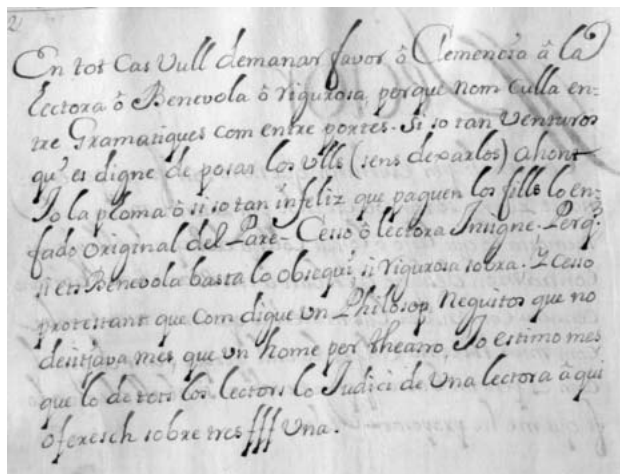 En tot Cas Vull demanar favor ô Clemencia â la
Lectora ô Benevola ô rigurosa, perque nom Culla en-
tre Gramatiques com entre portes. Si so tan Venturos
qu'es digne de posar los Vlls (sens dexarlos) ahont
Jo la ploma ô si so tan infeliz que paguen los fills lo en-
fado original del Pare. Cesso ô lectora Insigne. Perq.
si ets Benevola basta lo obsequi, si rigurosa sobra. Y Cesso
protestant que Com digue Vn Philosop Neguitos que no
desitjava mes que Vn home per theatro Jo estimo mes
que lo de tots los lectors lo Judici de Vna lectora â qui
oferesch sobre tres fff Vna.